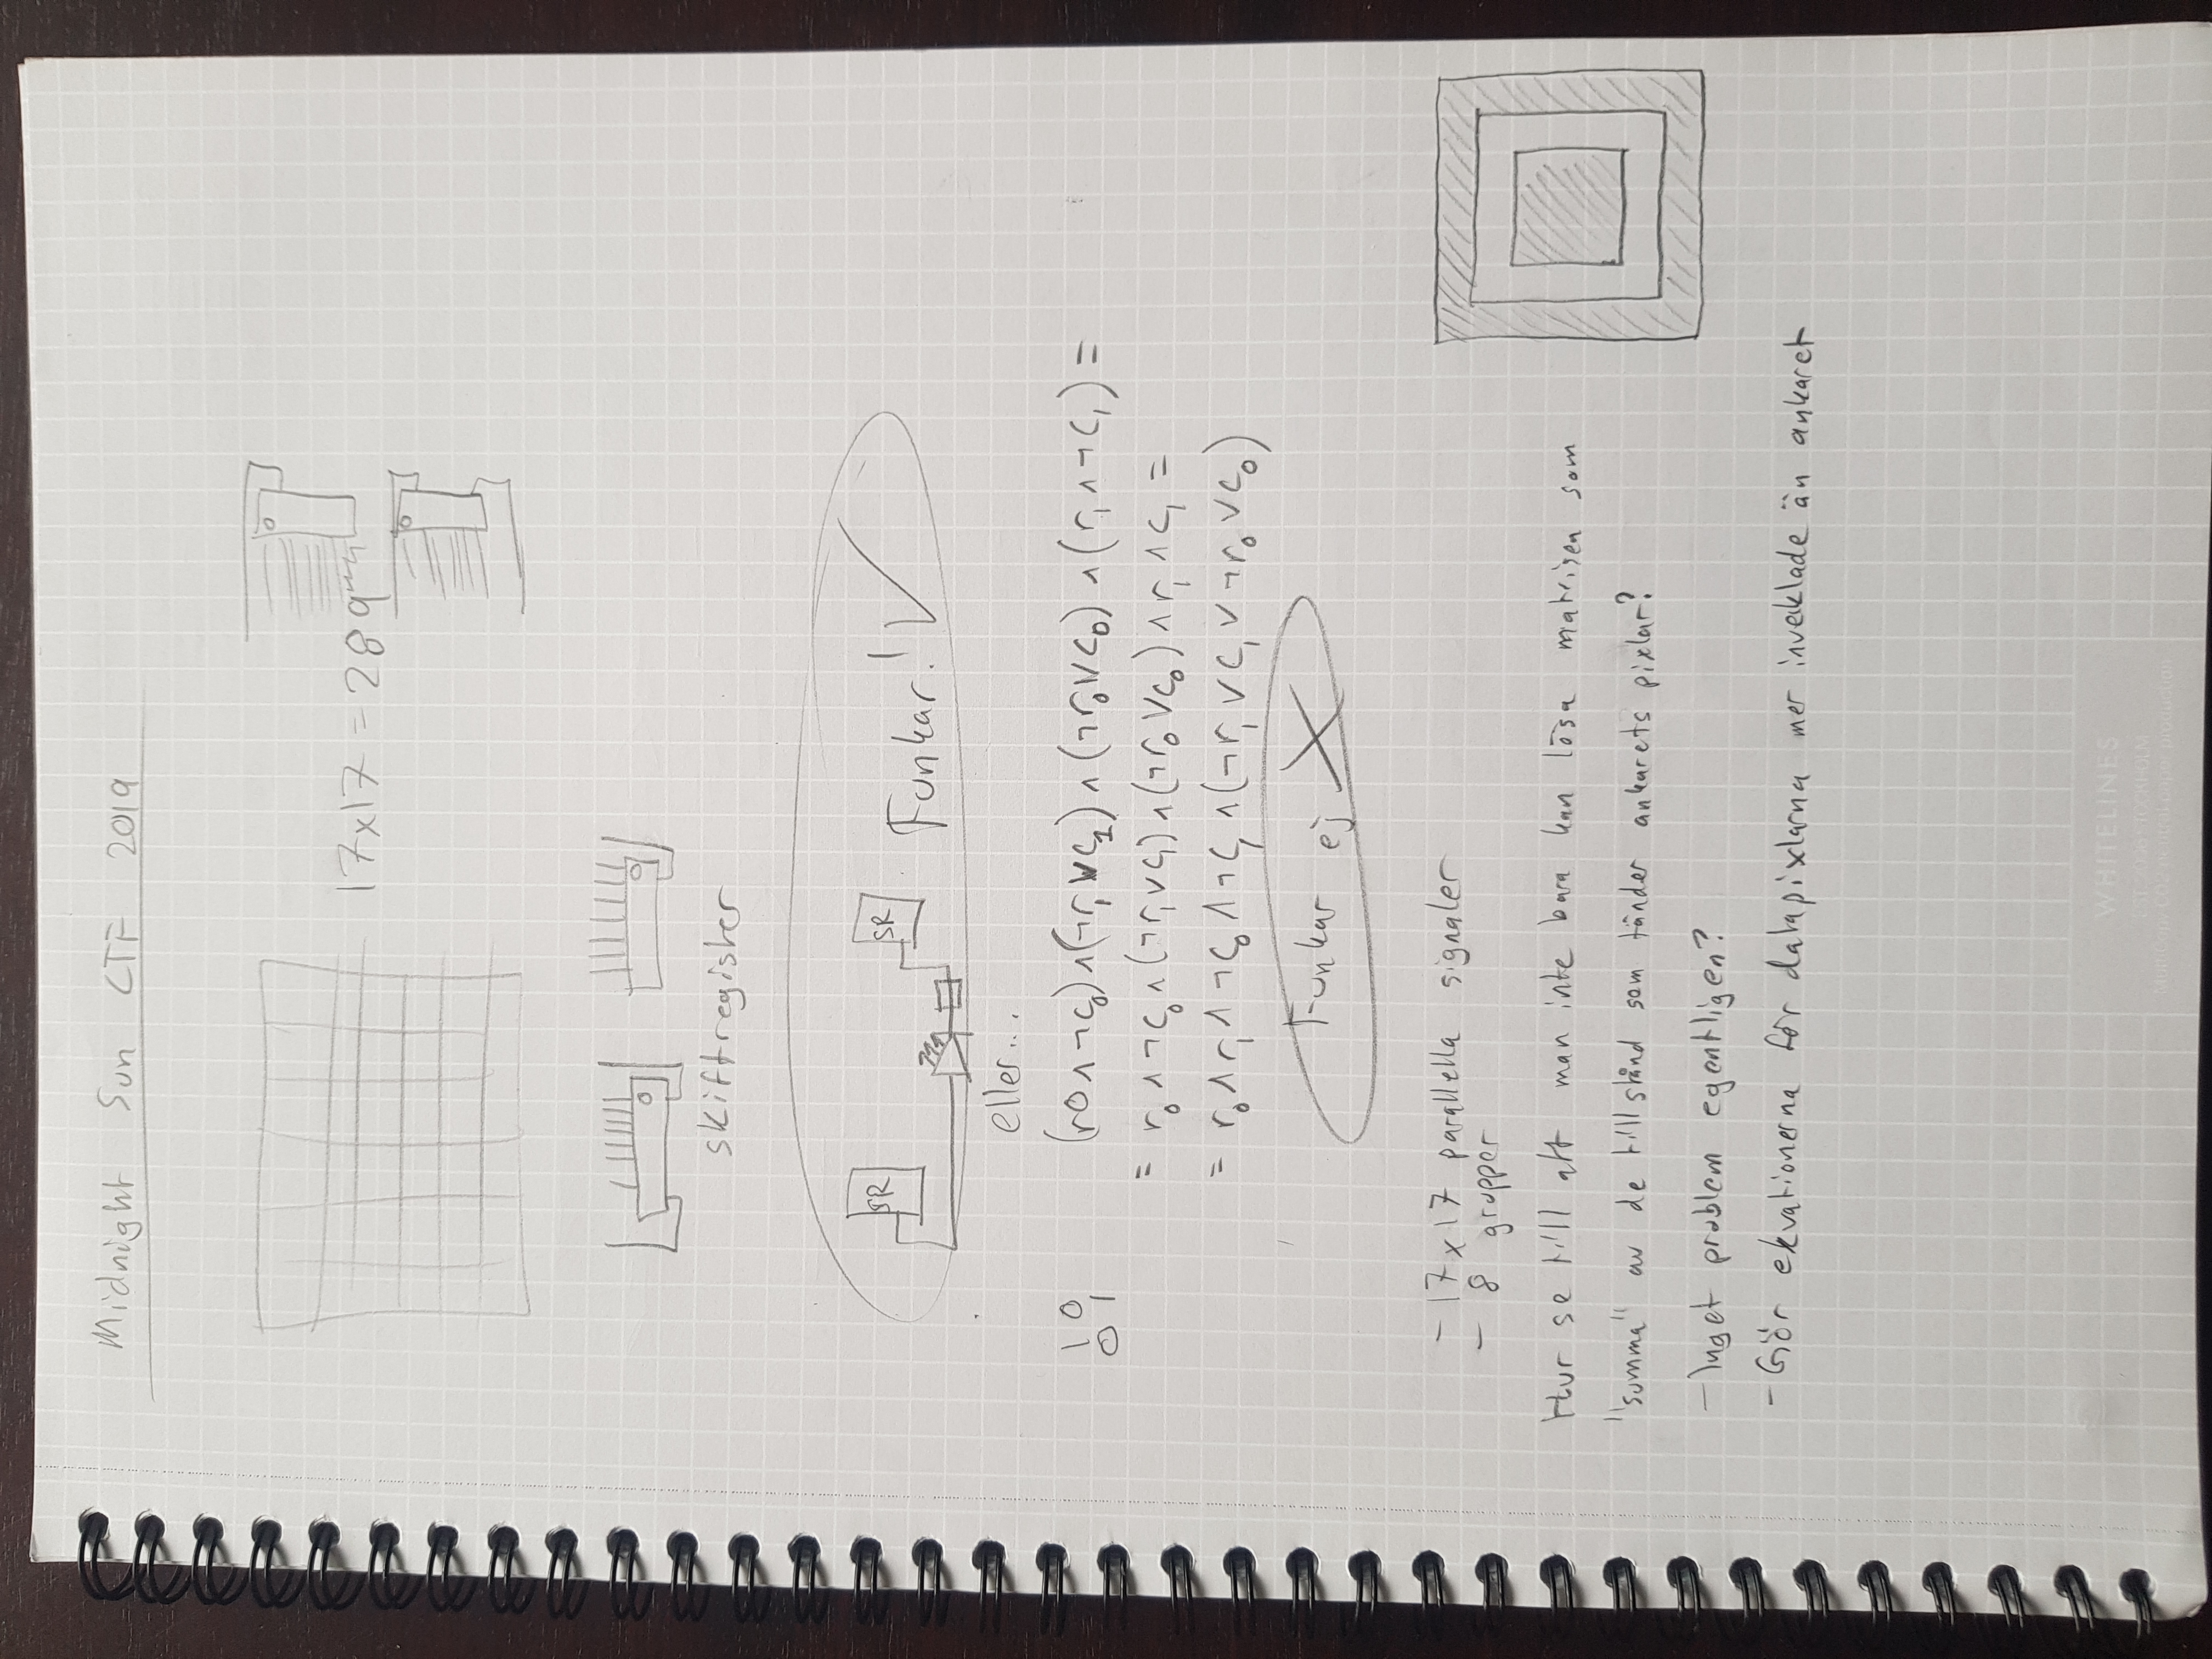 Midnight Sun CTF 2019
17x17 = 289
skiftregister
SR
SR
Funkar!
eller...
10
01
(r0∧¬c₀)∧(¬r₁∨c₁)∧(¬r₀∨c₀)∧(r₁∧¬c₁) =
= r₀∧¬c₀∧(¬r₁∨c₁)∧(¬r₀∨c₀)∧r₁∧c₁ =
= r₀∧r₁∧¬c₀∧¬c₁∧(¬r₁∨c₁∨¬r₀∨c₀)
Funkar ej
- 17x17 parallella signaler
- 8 grupper
Hur se till att man inte bara kan lösa matrisen som
"summa" av de tillstånd som tänder ankarets pixlar?
- Inget problem egentligen?
- Gör ekvationerna för datapixlarna mer invecklade än ankaret
WHITELINES